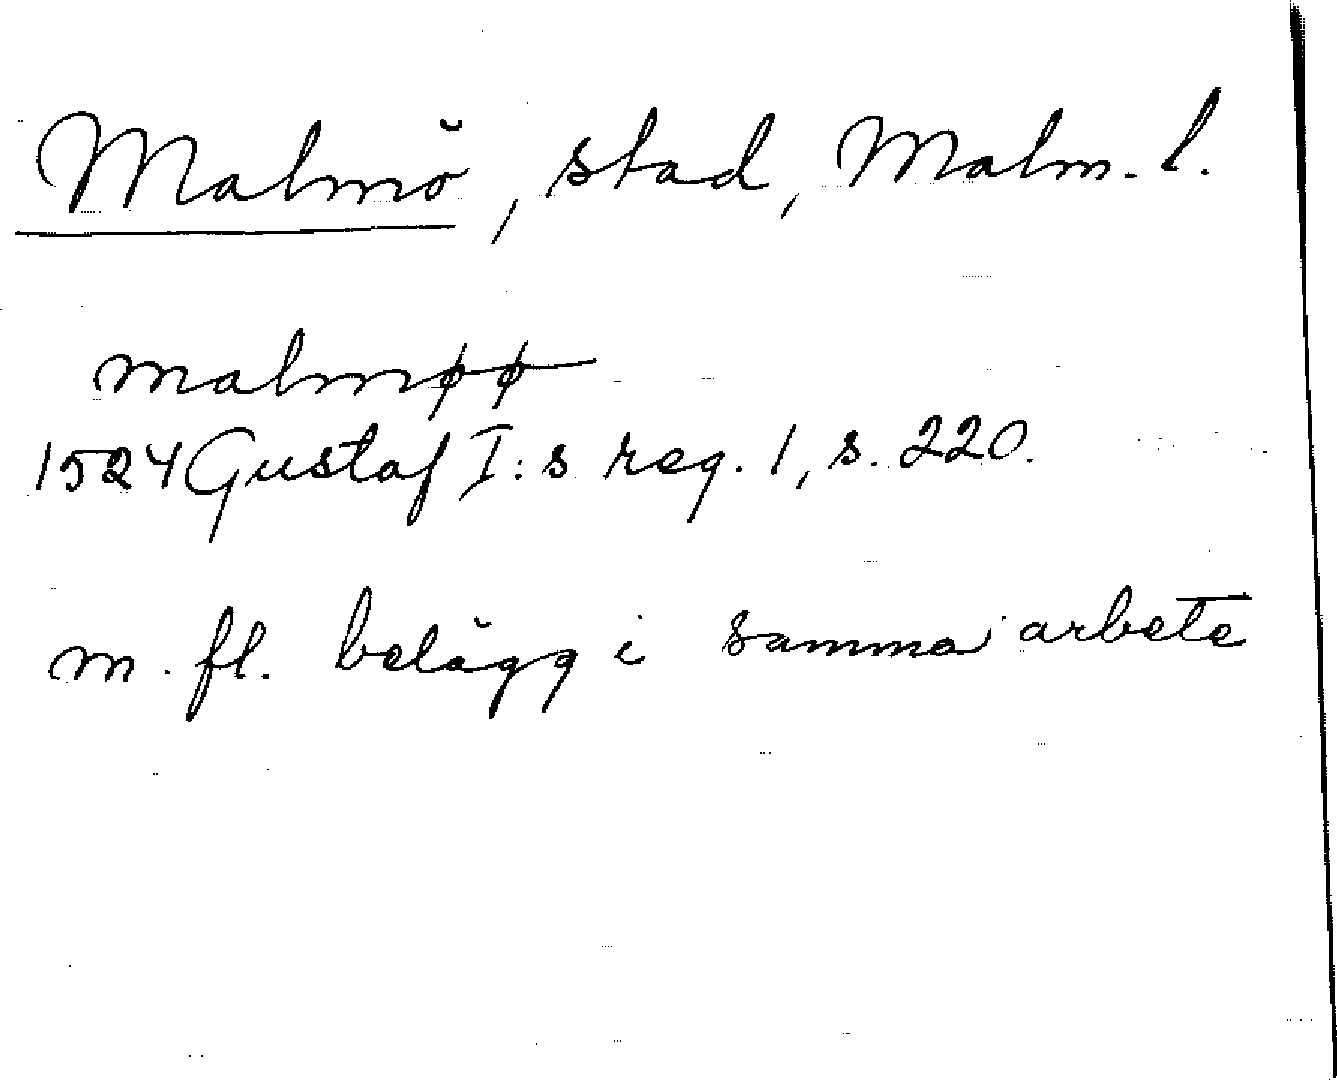 Malmö, stad, Malm. l.
malmøø
1524 Gustaf I:s reg. 1, s. 220.
m. fl. belägg i samma arbete